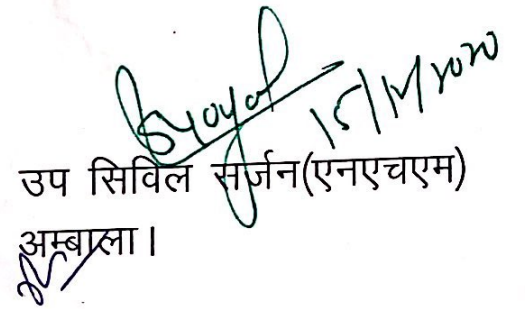 15/12/2020
उप सिविल सर्जन(एनएचएम)
अम्बाला।